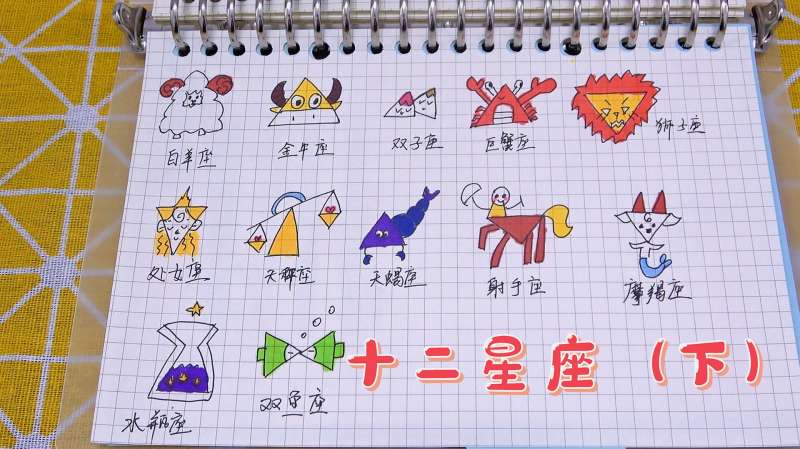 白羊座
金牛座
双子座
巨蟹座
狮子座
处女座
天秤座
天蝎座
射手座
摩羯座
水瓶座
双鱼座
十二星座（下）